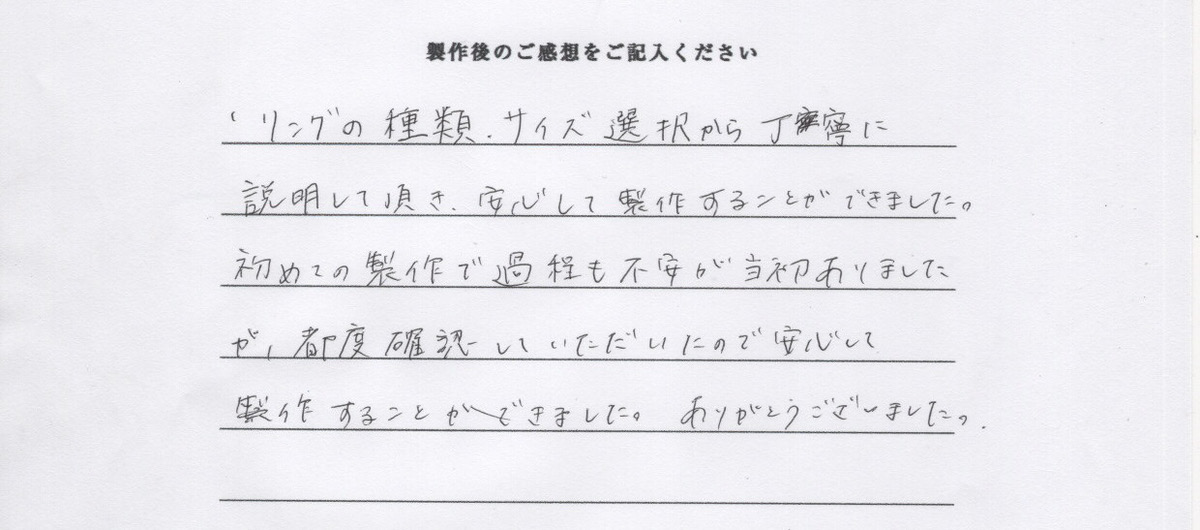 製作後のご感想をご記入ください
リングの種類、サイズ選択から丁寧に
説明して頂き、安心して製作することができました。
初めての製作で過程も不安が当初ありました
が、都度確認していただいたので安心して
製作することができました。ありがとうございました。